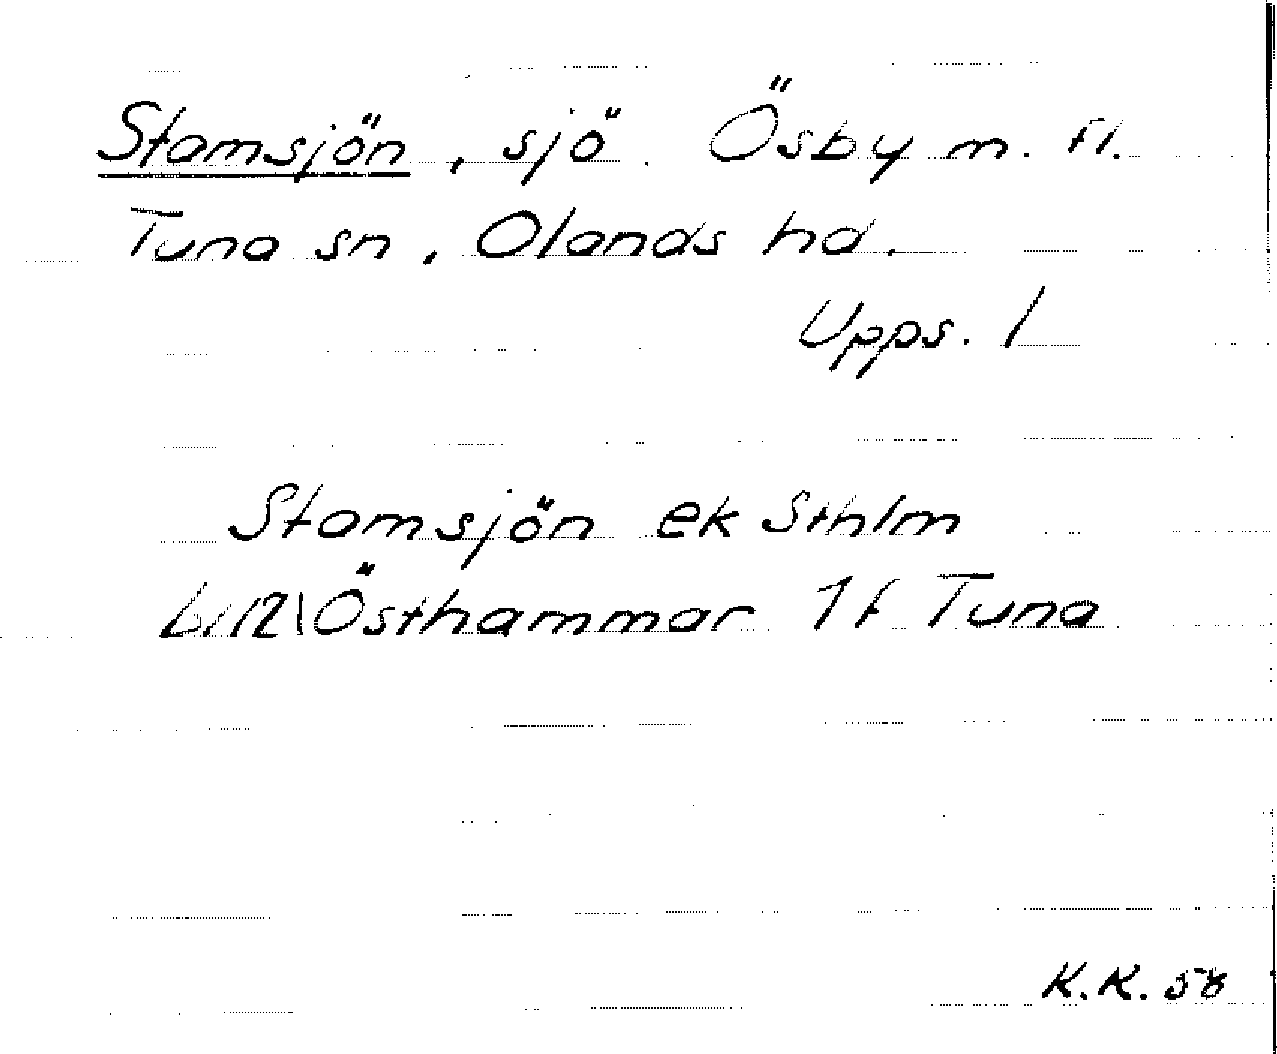 Stamsjön, sjö. Ösby m. fl.
Tuna sn, Olands hd.
Upps. l
Stamsjön ek Sthlm
Östhammar 1 f Tuna
K.K. 58